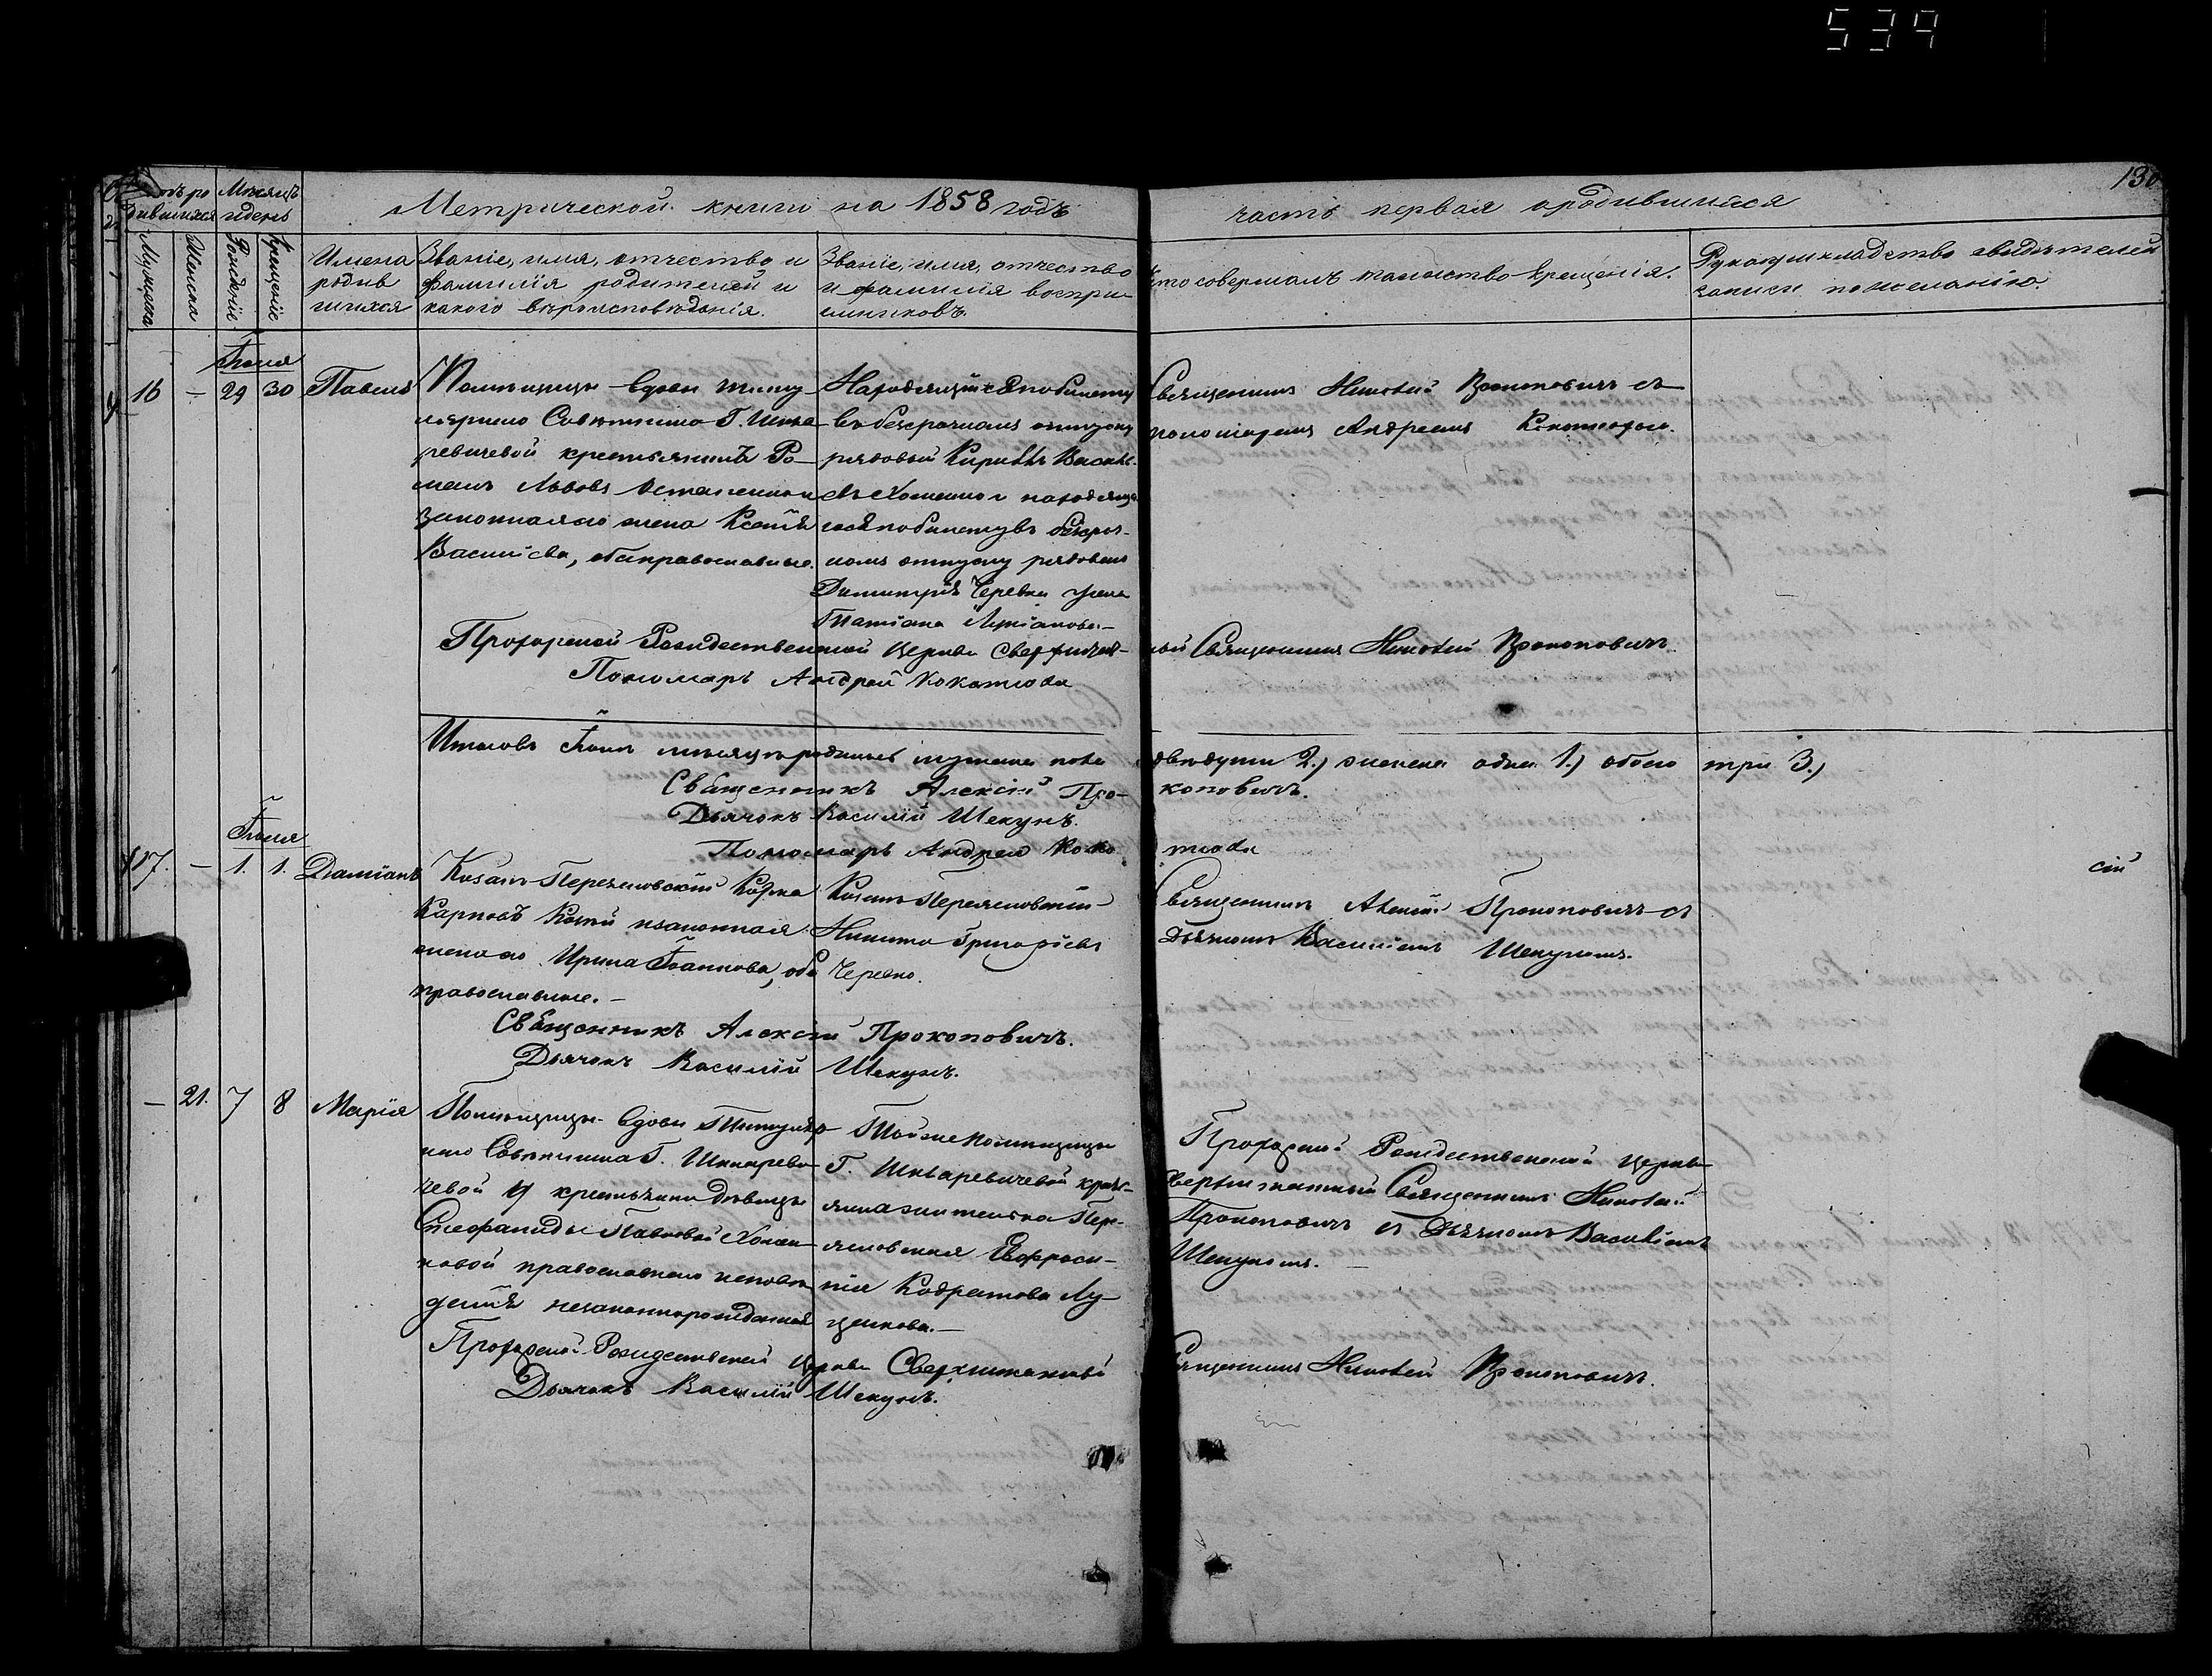 534
130
Метрической книги на 1858 годъ
часть первая о родившихся
Мѣсяцъ
и день
Мужеска
Женска
Рожденіе
Крещеніе
Имена
родив
шихся
Званіе, имя, отчество и
фамилія родителей и
какого вѣроисповѣданія.
Званіе, имя, отчество
и фамилія воспрі
емниковъ.
Кто совершалъ таинство крещенія.
Рукоприкладство свидѣтелей
записи по желанію.
Іюня
16 — 29 30 Павелъ
Помѣщицы вдовы титу
лярнаго Совѣтника Г. Шка
ревичевой крестьянинъ Ро
манъ Львовъ Остапенко и
законная его жена Ксенія
Василіева, оба православные.
въ безсрочномъ отпуску
рядовой Кириллъ Василь
евъ Хоменко и находяща
гося по билету въ безсроч
номъ отпуску рядоваго
Димитрія Черевка жена
Татіана Лукіанова
Священникъ Николай Прокоповичъ съ
пономаремъ Андреемъ
Прохорской Рождественской Церкви Сверхштат
ный Священникъ Николай Прокоповичъ.
Пономарь Андрей Кокотюха
Итого въ Іюнѣ мѣсяцѣ родилось мужеска пола
двѣ души 2.) женска одна 1.) обоего три 3.)
Священникъ Алексій Про
коповичъ.
Дьячокъ Василій Шекунъ.
Пономарь Андрей Коко
тюха
Іюля
17. — 1. 1. Даміанъ
Козакъ Переяловскій Карпъ
Карповъ и законная
жена его Ирина Іоаннова, оба
православные.—
Козакъ Переяловскій
Никита Григоріевъ
Черевко.
Священникъ Алексій Прокоповичъ съ
Дьячкомъ Василіемъ Шекуномъ.
сій
Священникъ Алексій Прокоповичъ.
Дьячокъ Василій Шекунъ.
— 21. 7 8 Марія
Помѣщицы вдовы Титуляр
наго Совѣтника Г. Шкареви
чевой у крестьянки дѣвицы
Стефаниды Павловой Хомен
ковой православнаго исповѣ
данія незаконнорожденная
Той же помѣщицы
Г. Шкаревичевой кресть
янка жителька Пере
яловская Евфроси
нія Кодратова Лу
ценкова.—
Прохорской Рождественской церкви
Сверхштатный Священникъ Николай
Прокоповичъ съ Дьячкомъ Василіемъ
Шекуномъ.—
Прохорской Рождественской Церкви Сверхштатный
Священникъ Николай Прокоповичъ.
Дьячокъ Василій Шекунъ.